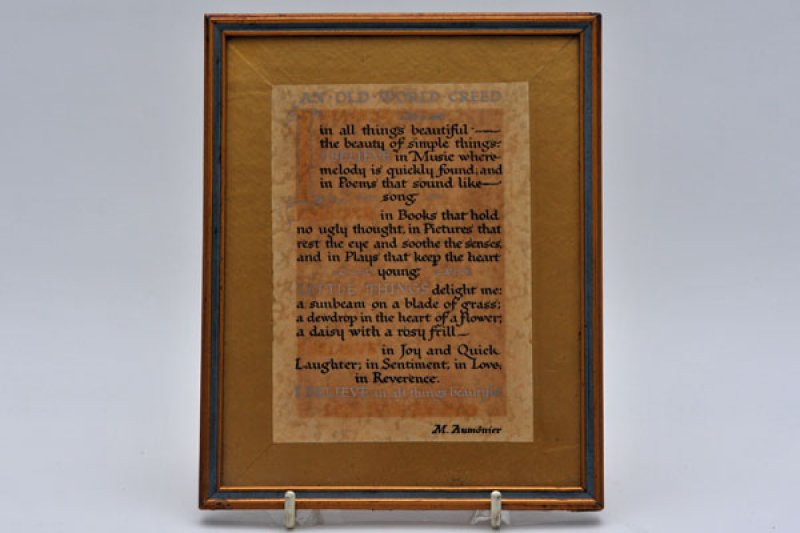 AN OLD WORLD CREED
in all things beautiful —
the beauty of simple things:
I BELIEVE in Music where
melody is quickly found; and
in Poems that sound like—
song;
in Books that hold
no ugly thought, in Pictures that
rest the eye and soothe the senses,
and in Plays that keep the heart
young;
LITTLE THINGS delight me:
a sunbeam on a blade of grass;
a dewdrop in the heart of a flower;
a daisy with a rosy frill—
in Joy and Quick
Laughter; in Sentiment, in Love,
in Reverence.
I BELIEVE in all things beautiful
M. Aumônier